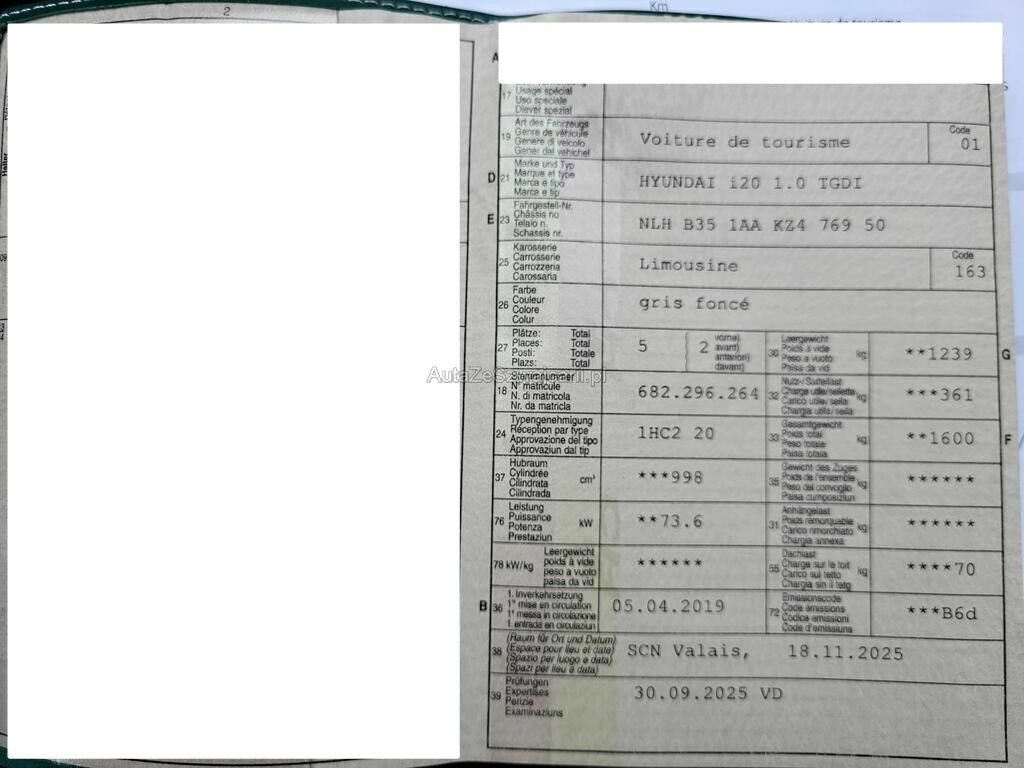 2
Km
A
17
Usage spécial
Uso speciale
Diever spezial
19 Art des Fahrzeugs
Genre de véhicule
Genere di veicolo
Gener dal vehichel
Voiture de tourisme
Code
01
D 21 Marke und Typ
Marque et type
Marca e tipo
Marca e tip
HYUNDAI i20 1.0 TGDI
E 23 Fahrgestell-Nr.
Châssis no
Telaio n.
Schassis nr.
NLH B35 1AA KZ4 769 50
25 Karosserie
Carrosserie
Carrozzeria
Carossaria
Limousine
Code
163
26 Farbe
Couleur
Colore
Colur
gris foncé
27 Plätze: Total
Places: Total
Posti: Totale
Plazs: Total
5 ( 2 vorne)
avant)
anteriori)
davant)
30 Leergewicht
Poids à vide
Peso a vuoto
Paisa da vid
kg
**1239
G
AutaZeSzwajcarii.pl
18 Stammnummer
N° matricule
N. di matricola
Nr. da matricla
682.296.264
32 Nutz-/Sattellast
Charge utile/sellette
Carico utile/sella
Chargia utila/sella
kg
***361
24 Typengenehmigung
Réception par type
Approvazione del tipo
Approvaziun dal tip
1HC2 20
33 Gesamtgewicht
Poids total
Peso totale
Paisa totala
kg
**1600
F
37 Hubraum
Cylindrée
Cilindrata
Cilindrada
cm³
***998
35 Gewicht des Zuges
Poids de l'ensemble
Peso del convoglio
Paisa cumposiziun
kg
******
76 Leistung
Puissance
Potenza
Prestaziun
kW
**73.6
31 Anhängelast
Poids remorquable
Carico rimorchiato
Chargia annexa
kg
******
78 kW/kg
Leergewicht
poids à vide
peso a vuoto
paisa da vid
******
55 Dachlast
Charge sur le toit
Carico sul tetto
Chargia sin il tetg
kg
****70
B 36 1. Inverkehrsetzung
1re mise en circulation
1a messa in circolazione
1. entrada en circulaziun
05.04.2019
72 Emissionscode
Code émissions
Codice emissioni
Code d'emissiuns
***B6d
38 (Raum für Ort und Datum)
(Espace pour lieu et date)
(Spazio per luogo e data)
(Spazi per lieu e data)
SCN Valais, 18.11.2025
39 Prüfungen
Expertises
Perizie
Examinaziuns
30.09.2025 VD